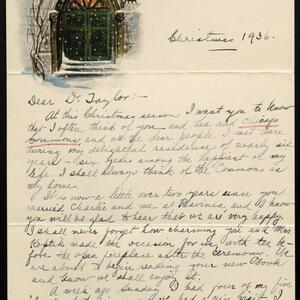 Christmas 1936.
Dear Dr. Taylor:-
At this Christmas season I want you to know
that I often think of you and Lea and Chicago
Commons and all the dear people I met there
during my delightful residence of nearly six
years - six years among the happiest of my
life. I shall always think of the Commons as
my home.
It is now a little over two years since you
married Charlie and me at Ravinia and I know
you will be glad to hear that we are very happy.
I shall never forget how charming you and Mrs.
made the occasion for us with tea be-
fore the open fireplace after the ceremony. We
are about to begin reading your new book
and know we shall enjoy it.
A week ago Sunday I had four of my five